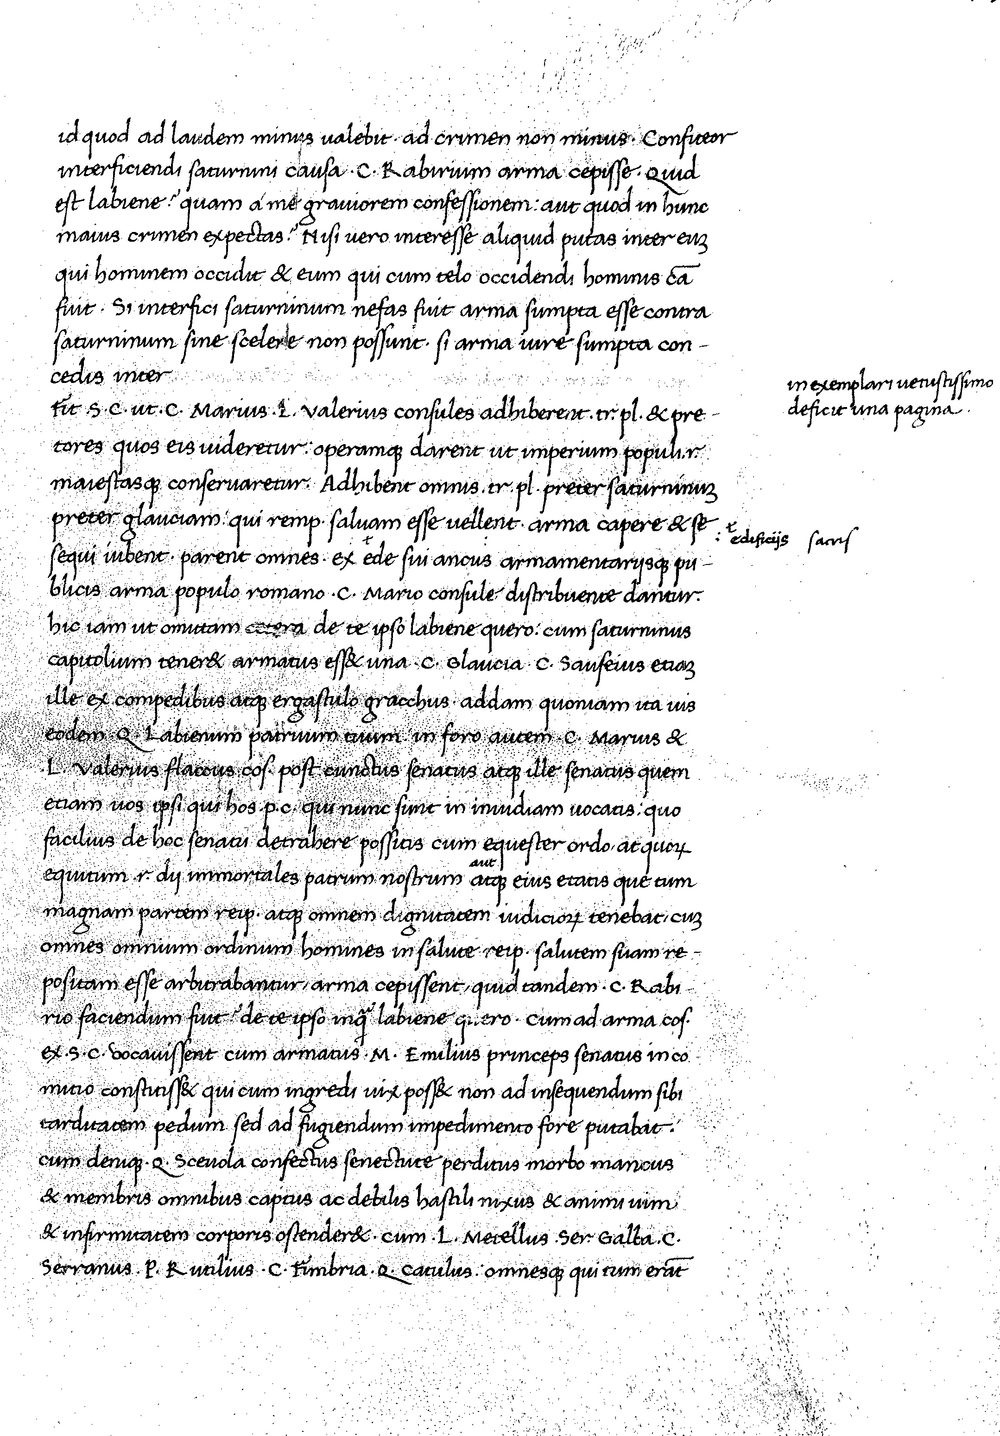 id quod ad laudem minus ualebit · ad crimen non minus · Confiteor
interficiendi saturnini causa · C · Rabirium arma cepisse · Quid
est labiene? quam a me grauiorem confessionem: aut quod in hunc
maius crimen expectas? Nisi uero interesse aliquid putas inter euʒ
qui hominem occidit & eum qui cum telo occidendi hominis cā
fuit · Si interfici saturninum nefas fuit arma sumpta esse contra
saturninum sine scelere non possunt · si arma iure sumpta con-
cedis inter
in exemplari uetustissimo
deficit una pagina ·
Fit S · C · ut · C · Marius · L · Valerius consules adhiberent · tr · pl · & pre-
tores quos eis uideretur: operamqꝫ darent ut imperium populi · r ·
maiestasqꝫ conseruaretur · Adhibent omnis · tr · pl · preter saturninuʒ
preter glauciam: qui remp · saluam esse uellent · arma capere & se
sequi iubent · parent omnes · ex ęde sui ancus armamentarijsqꝫ pu-
: ędificijs sacris
blicis arma populo romano · C · Mario consule distribuente dantur ·
hic iam ut omittam cetera de te ipso labiene quero: cum saturninus
capitolium tener& armatus ess& una · C · Glaucia · C · Saufeius etiaʒ
ille ex compedibus atqꝫ ergastulo gracchus · addam quoniam ita uis
eodem · Q · Labienum patruum tuum in foro autem · C · Marius &
L · Valerius flaccus cos · post cunctus senatus atqꝫ ille senatus quem
etiam uos ipsi qui hos p · c · qui nunc sunt in inuidiam uocatis: quo
facilius de hoc senatu detrahere possitis cum equester ordo, at quoꝝ
equitum · r · dij immortales patrum nostrum atqꝫ eius etatis que tum
aut
magnam partem reip · atqꝫ omnem dignitatem iudicioꝝ tenebat, cuʒ
omnes omnium ordinum homines in salute reip · salutem suam re-
positam esse arbitrabantur, arma cepissent, quid tandem · C · Rabi-
rio faciendum fuit? de te ipso inq̃ labiene quero · Cum ad arma cos ·
ex · S · C · uocauissent cum armatus · M · Emilius princeps senatus in co
mitio constitiss& qui cum ingredi uix poss& non ad insequendum sibi
tarditatem pedum sed ad fugiendum impedimento fore putabat ·
cum deniqꝫ · Q · Sceuola confectus senectute perditus morbo mancus
& membris omnibus captus ac debilis hastili nixus & animi uim
& infirmitatem corporis ostender& · cum · L · Metellus · Ser · Galba · C ·
Serranus · P · Rutilius · C · Fimbria · Q · Catulus: omnesqꝫ qui tum erāt